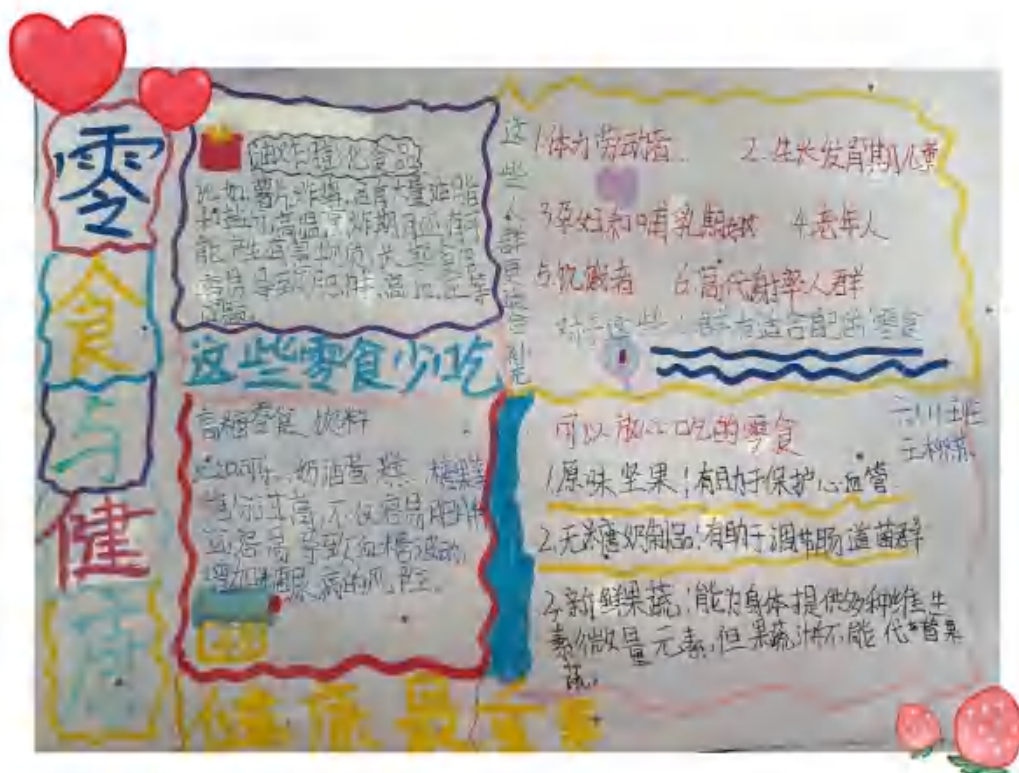 零食与健康
油炸膨化食品
比如薯片炸鸡,含有大量油脂
和盐,高温煎炸期间还有可
能产生有害物质,长期食用
容易导致肥胖,高血压等
问题。
这些零食少吃
高糖零食 饮料
比如可乐、奶油蛋糕、糖果等
糖分过高,不仅容易肥胖
还容易导致血糖波动,
增加糖尿病的风险。
健康最重要
这些人群更适合
1.体力劳动者. 2.生长发育期儿童
3.孕妇和哺乳期 4.老年人
5.饮酒者 6.高代谢率人群
对于这些人群有适合配的零食
六(1)班
王
可以放心吃的零食
1.原味坚果:有助于保护心血管
2.无糖奶制品:有助于调节肠道菌群
3.新鲜果蔬:能为身体提供多种维生
素微量元素,但果蔬汁不能代替果
蔬。